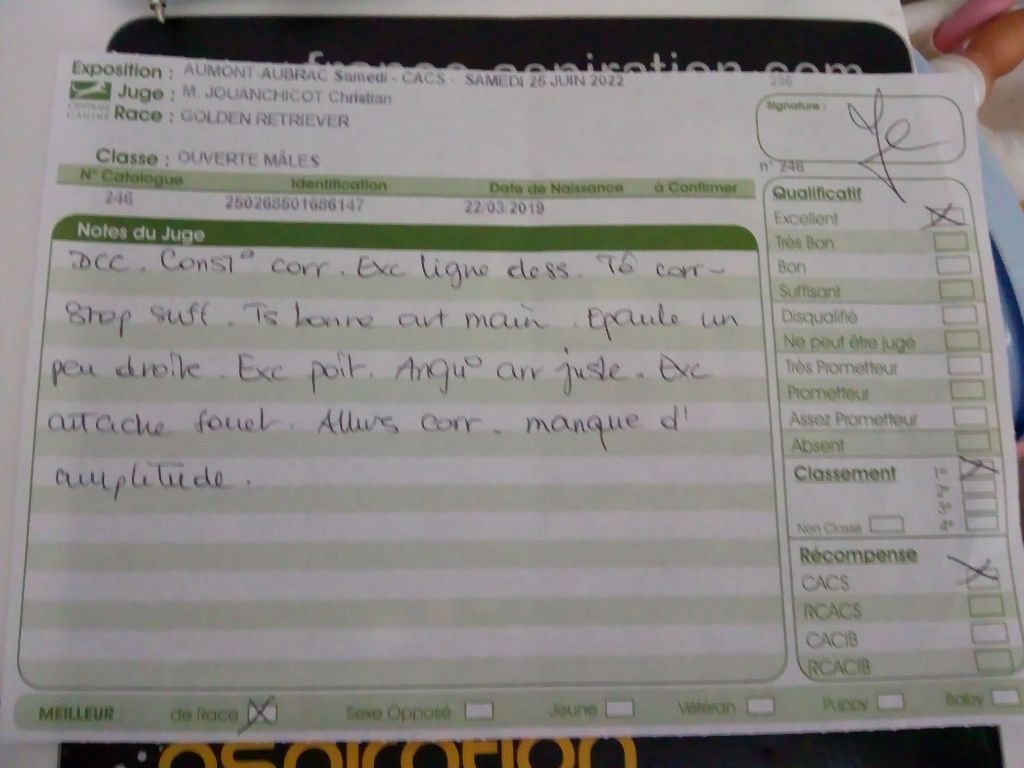 france aspiration.com
Exposition : AUMONT-AUBRAC Samedi - CACS - SAMEDI 25 JUIN 2022
236
Juge : M. JOUANCHICOT Christian
CENTRALE CANINE
Race : GOLDEN RETRIEVER
Signature :
Classe : OUVERTE MÂLES
n° 246
N° Catalogue Identification Date de Naissance à Confirmer
246 250268501686147 22/03/2019
Notes du Juge
DCC. Const° corr. Exc ligne dess. Tê corr-
Stop suff. Ts bonne art main. Epaule un
peu droite. Exc poit. Angu° arr juste. Exc
attache fouet. Allurs corr. manque d'
amplitude.
Qualificatif
Excellent
Très Bon
Bon
Suffisant
Disqualifié
Ne peut être jugé
Très Prometteur
Prometteur
Assez Prometteur
Absent
Classement 1°
2°
3°
Non Classé 4°
Récompense
CACS
RCACS
CACIB
RCACIB
MEILLEUR : de Race Sexe Opposé Jeune Vétéran Puppy Baby
aspiration